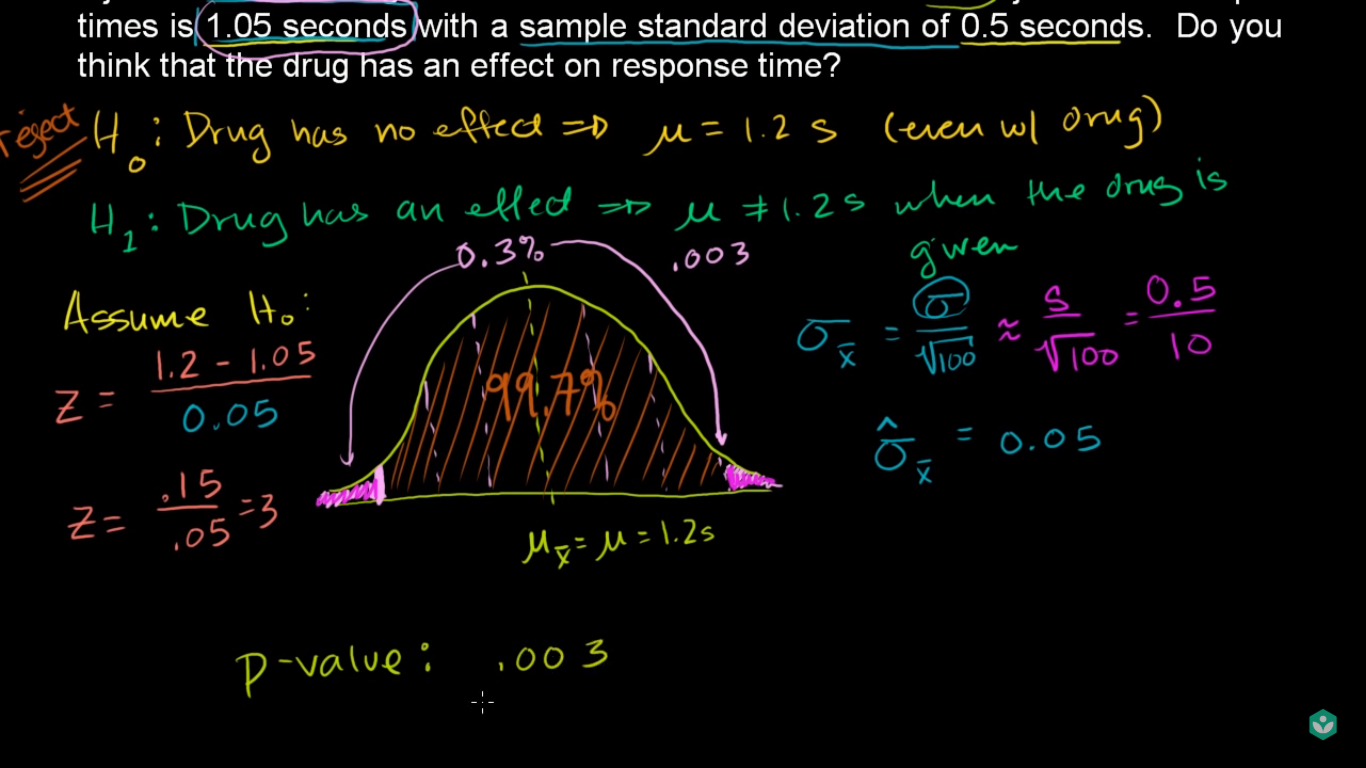 times is 1.05 seconds with a sample standard deviation of 0.5 seconds. Do you
think that the drug has an effect on response time?
reject H₀: Drug has no effect ⇒ μ = 1.2 s (even w/ drug)
H₁: Drug has an effect ⇒ μ ≠ 1.2 s when the drug is
given
0.3% .003
Assume H₀:
Z = (1.2 - 1.05) / 0.05
Z = .15 / .05 = 3
99.7%
σx̄ = σ/√100 ≈ s/√100 = 0.5/10
σ̂x̄ = 0.05
μx̄ = μ = 1.2s
P-value: .003